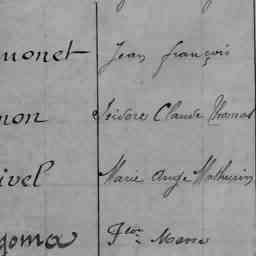 monet Jean François
non Isidore Claude Thomas
ivel Marie Ange Mathurin
goma Marie